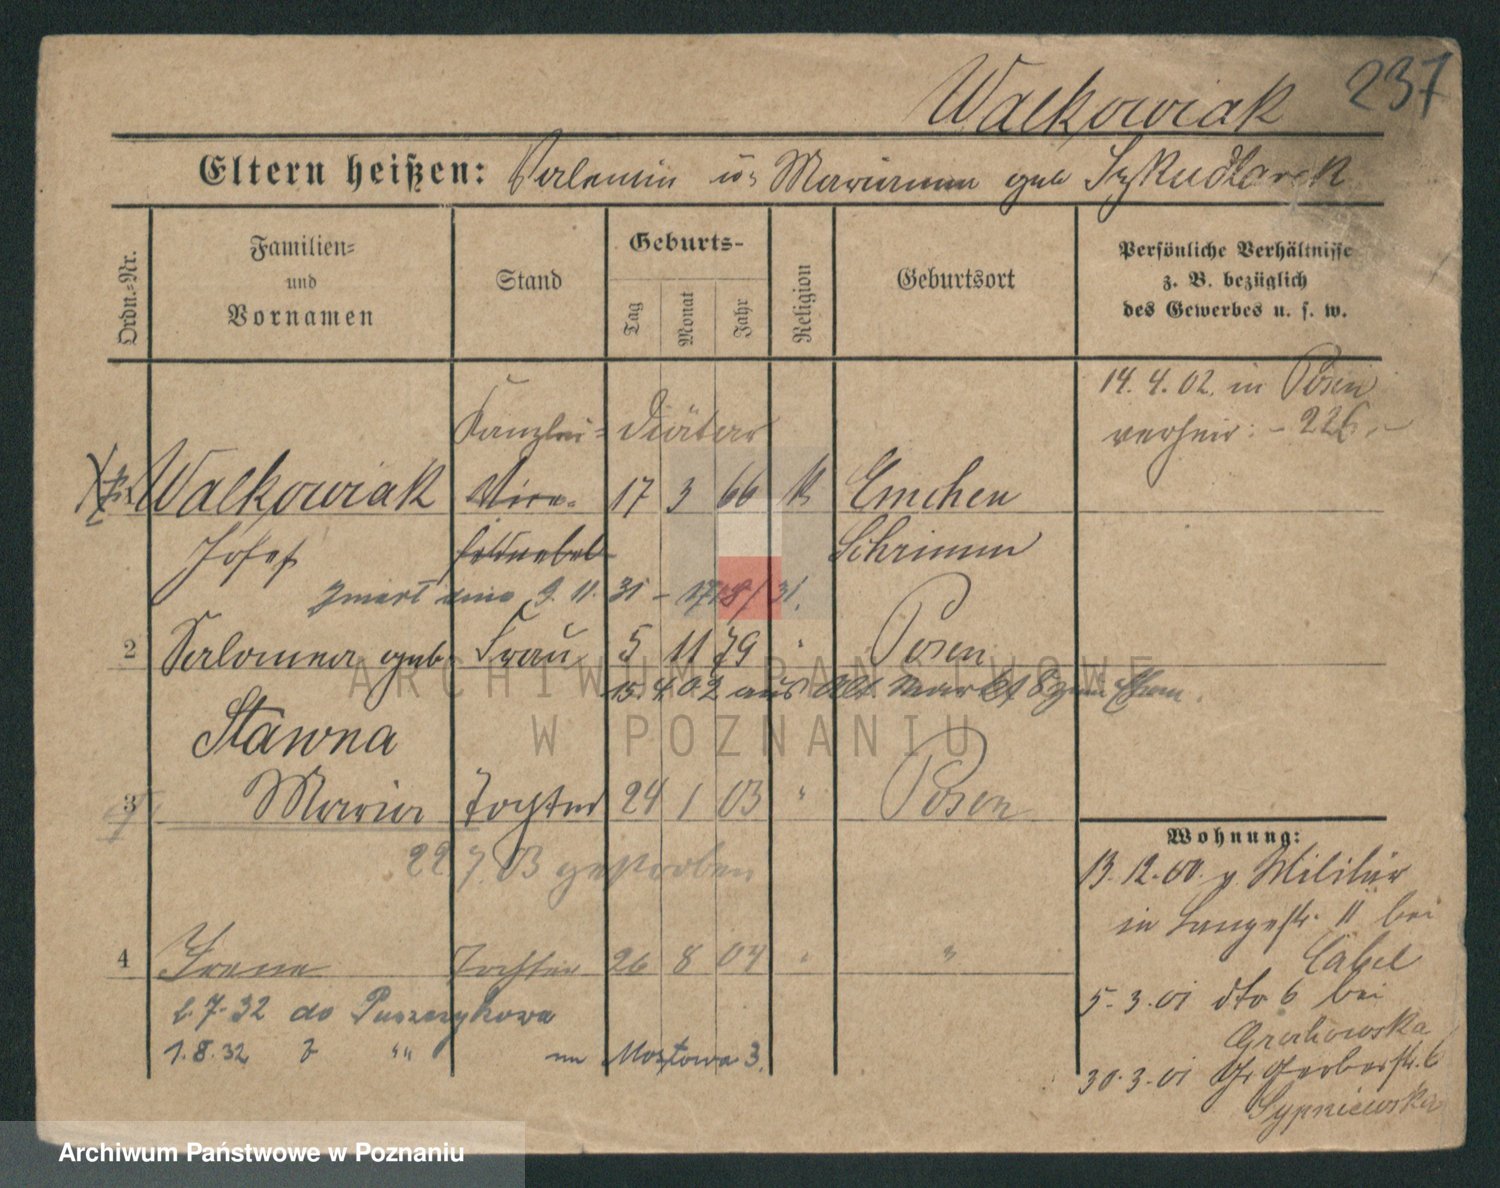 Walkowiak 237
Eltern heißen: Valentin u. Marianna geb Szkudlarek
Ordn.-Nr.
Familien- und Vornamen
Stand
Geburts-
Tag Monat Jahr
Religion
Geburtsort
Persönliche Verhältnisse
z. B. bezüglich
des Gewerbes u. s. w.
14. 4. 02. in Posen
verheir: - 226.-
Kanzlei- Diätar
Walkowiak Vice- 17 3 66 k Emchen
Josef feldwebel Schrimm
zmarł dnia 9. 11. 31 - /31.
2 Salomea geb. Frau 5 11 79 " Posen
15. 4. 02 aus Alt Markt 8 zum
Stawna
3 Maria Tochter 24 1 03 " Posen
22 7. 03 gestorben
4 Irene Tochter 26 8 04 " "
7-32 do Puszczykowa
1. 8. 32 z " " Mostowa 3.
Wohnung:
13. 12. 00. v. Militär
in Langestr. 11 bei
Cabel
5. 3. 01 dto 6 bei
Grochowska
30. 3. 01 Gr Gerberstr. 6
Sypniewska
ARCHIWUM PAŃSTWOWE
W POZNANIU
Archiwum Państwowe w Poznaniu